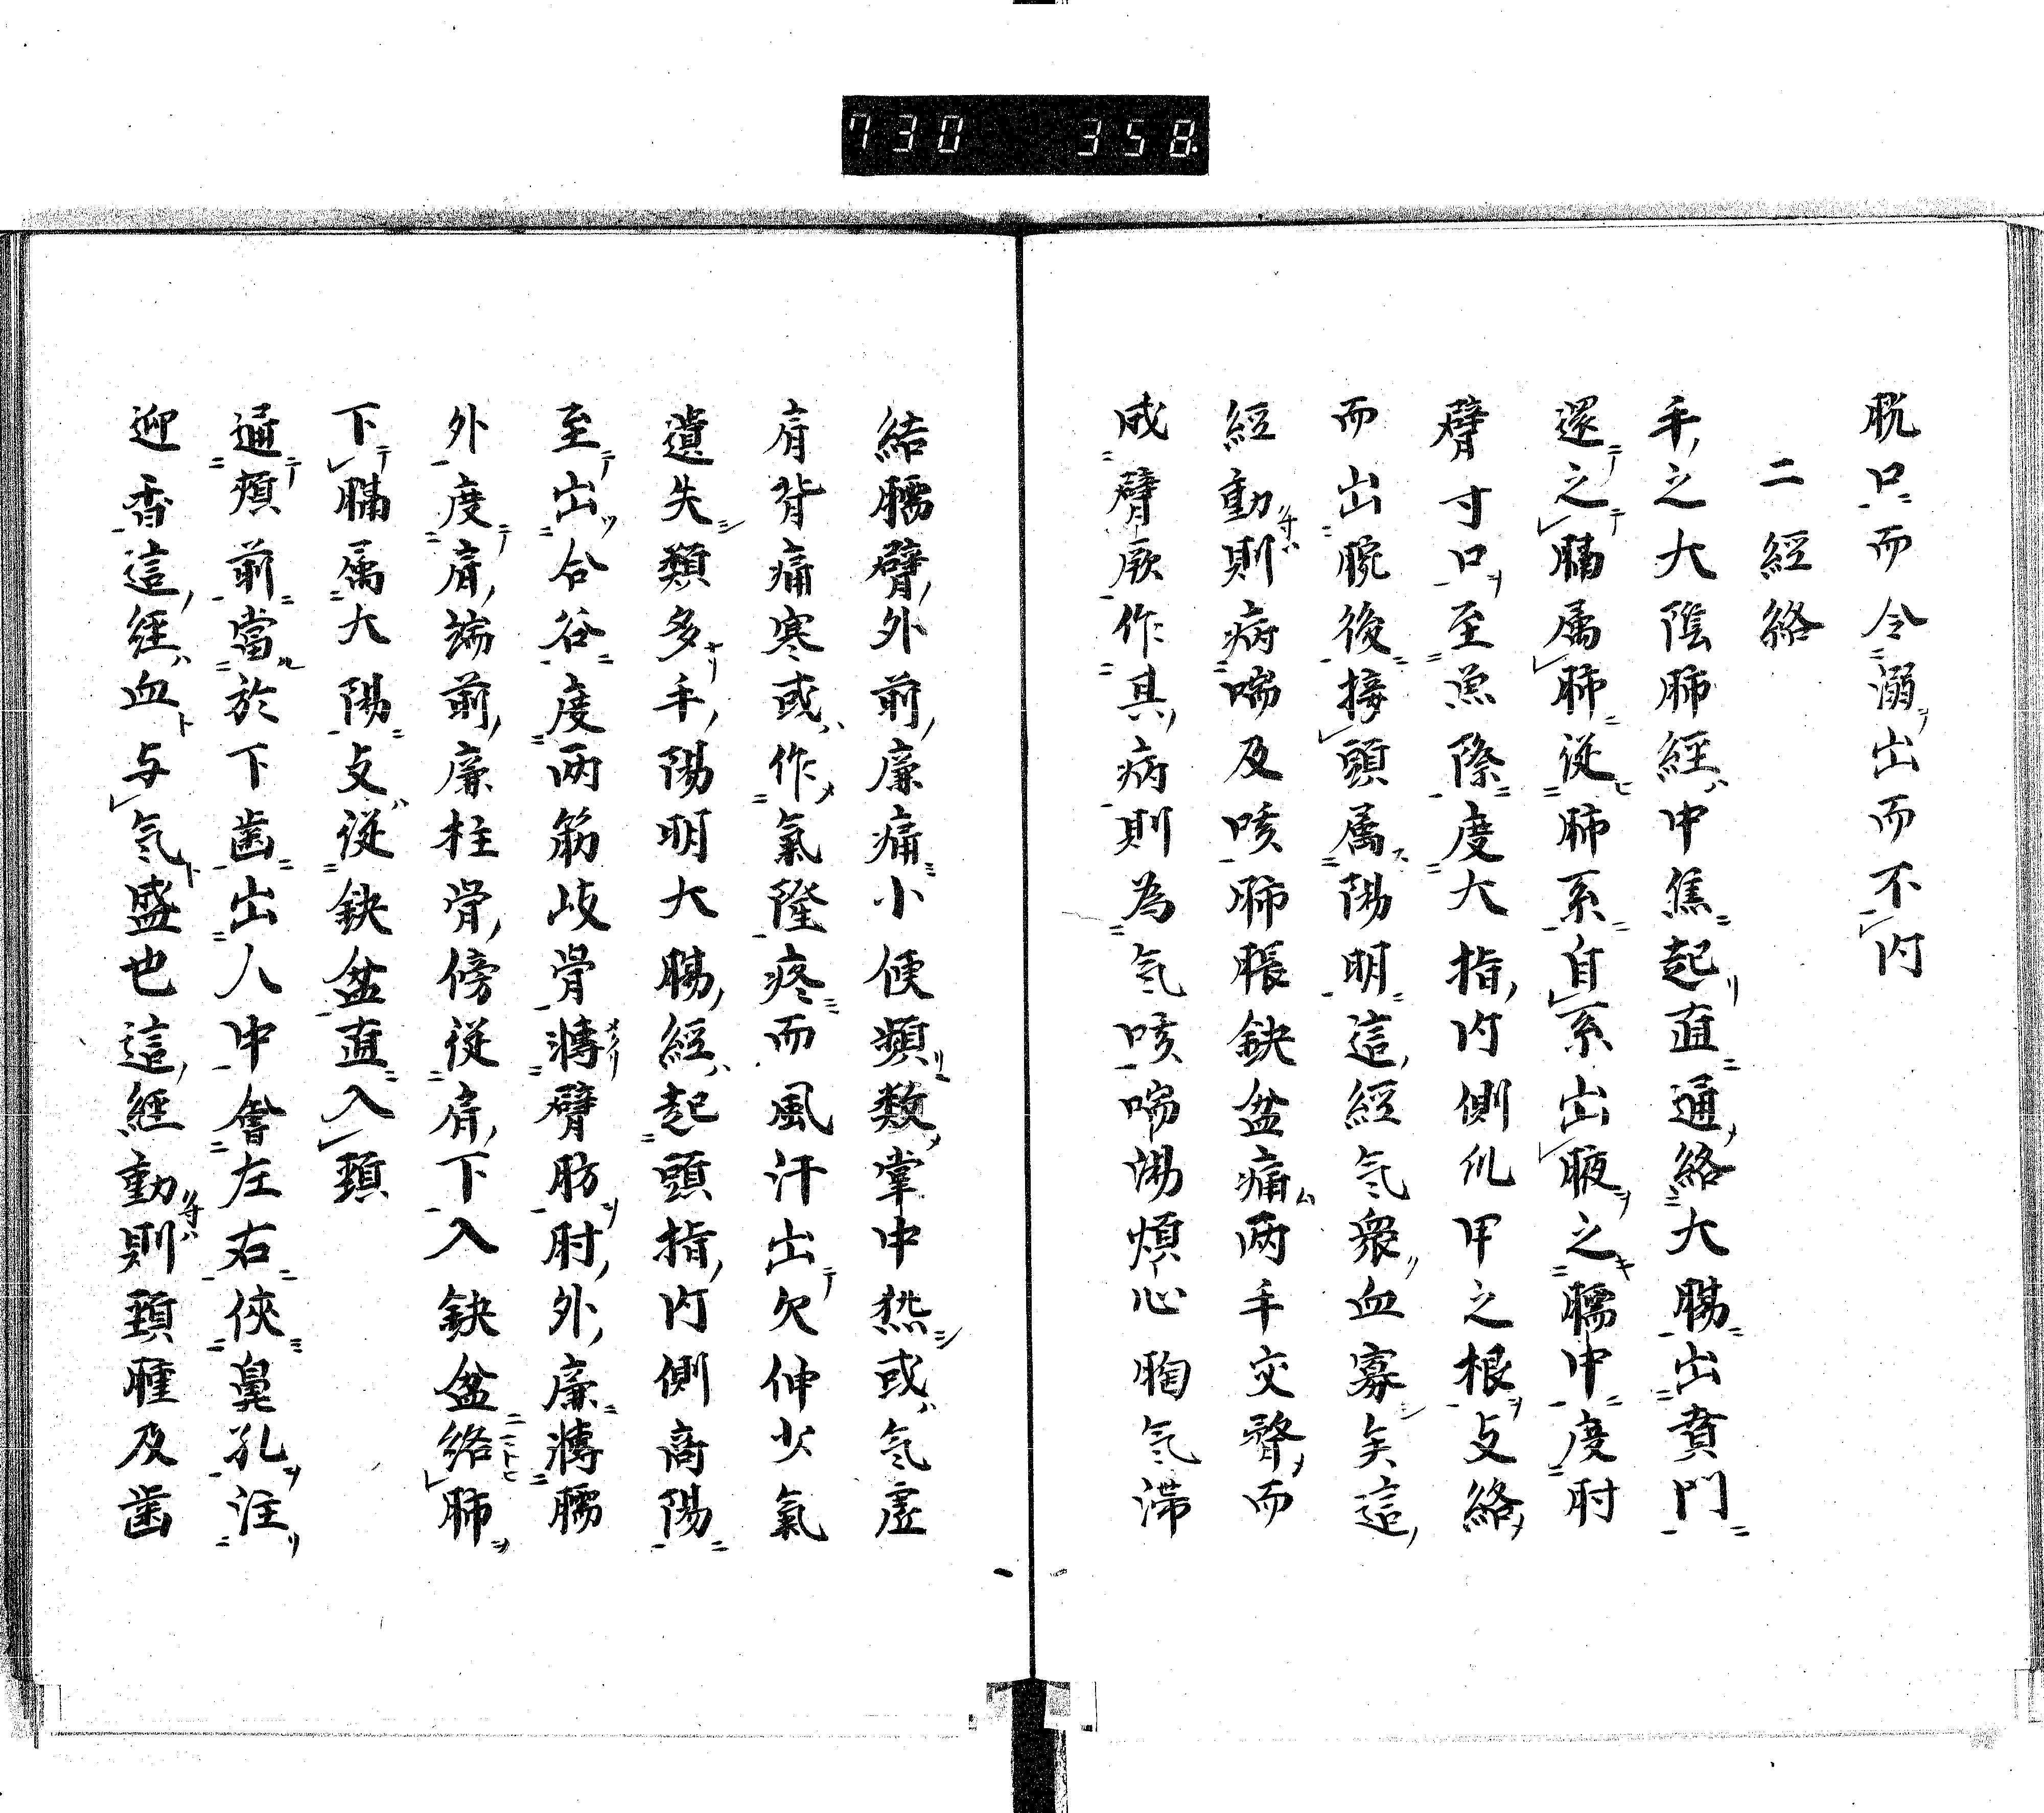 730 358
脱口而令溺出而不内
二經絡
手之大陰肺經中焦起直通絡大腸出賁門
還之膈属肺從肺系自系出腋之臑中度肘
臂寸口至魚際度大指内側爪甲之根攴絡
而出腕後接頭属陽明這經气衆血寡矣這
經動則病喘及咳肺脹鈌盆痛両手交瞀而
成臂厥作其病則為气咳喘渇煩心胸气滞
結臑臂外前廉痛小便頻数掌中熱或气虚
肩背痛寒或作氣隆疼而風汗出欠伸少氣
遺失類多手陽明大腸經起頭指内側商陽
至出合谷度両筋岐骨慱臂肪肘外廉慱臑
外度肩端前廉柱骨傍従肩下入鈌盆絡肺
下膈属大陽攴從鈌盆直入頚
通頬前當於下歯出人中會左右俠鼻孔注
迎香這經血与气盛也這經動則頚腫及歯